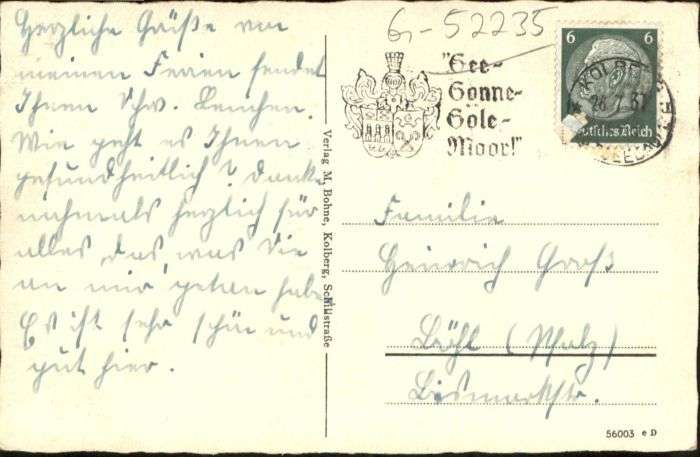 6,-52235
Herzliche Grüße von
meinen Ferien sendet
Ihnen Schw. Lenchen.
Wie geht es Ihnen
gesundheitlich? Danke
nochmals herzlich für
alles das was Sie
an mir getan habe
Es ist sehr schön und
gut hier.
Verlag M. Bohne, Kolberg, Schillstraße
"See-
Sonne-
Sole-
Moor!"
6 6
Deutsches Reich
KOLBERG
28.7.37
SEEBAD
Familie
Heinrich Groß
Böhl (Pfalz)
Bismarckstr.
56003 e D